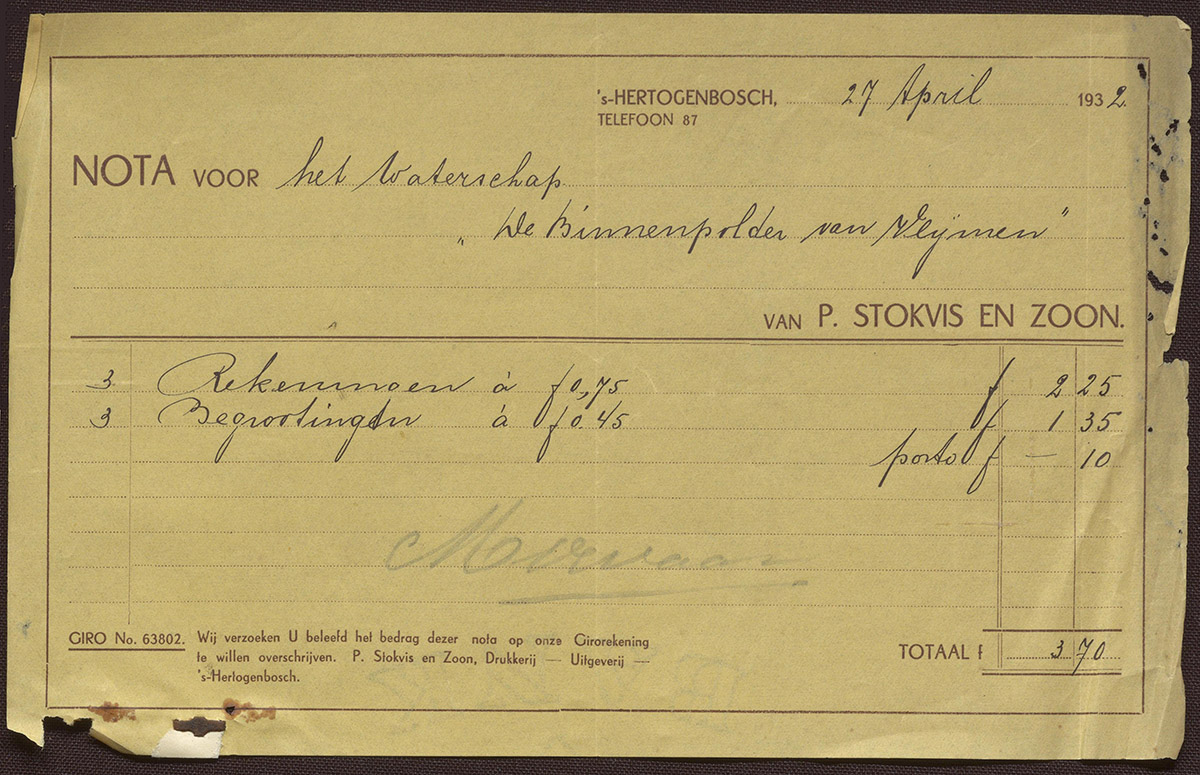 's-HERTOGENBOSCH, 27 April 1932.
TELEFOON 87
NOTA VOOR het Waterschap
„ De Binnenpolder van Vlijmen"
VAN P. STOKVIS EN ZOON.
3 Rekeningen à f 0,75 f 2 25
3 Begrootingen à f 0.45 f 1 35
porto f — 10
GIRO No. 63802. Wij verzoeken U beleefd het bedrag dezer nota op onze Girorekening
te willen overschrijven. P. Stokvis en Zoon, Drukkerij — Uitgeverij —
's-Hertogenbosch.
TOTAAL f 3 70